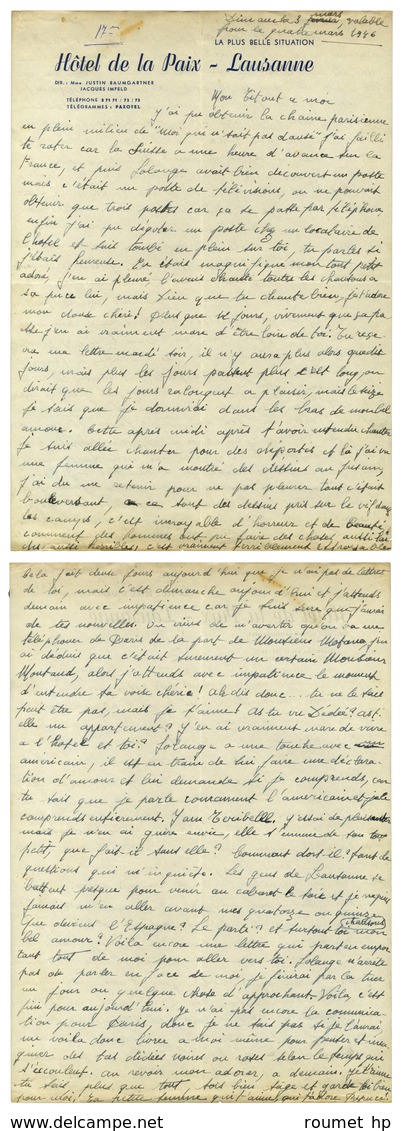 175
Dimanche 3 mars, valable
pour le quatre mars 1946
LA PLUS BELLE SITUATION
Hôtel de la Paix - Lausanne
DIR.: Mme JUSTIN BAUMGARTNER
JACQUES IMFELD
TÉLÉPHONE 3 71 71 / 72 / 73
TÉLÉGRAMMES: PAXOTEL
Mon Tétant a moi
y'ai pu obtenir la chaine parisienne
en plein milieu de "Moi qui n'sait pas danser" j'ai failli
te rater car la Suisse a une heure d'avance sur la
France, et puis Solange avait bien decouvert un poste
mais c'était un poste de télévisions, on ne pouvait
obtenir que trois postes car ça se passe par téléphone
enfin j'ai pu dégoter un poste chez un locataire de
l'hotel et suis tombé en plein sur toi, tu parles si
j'étais heureuse. Tu étais magnifique mon tout petit
adoré, j'en ai pleuré
sa puce lui, mais Dieu que tu chante bien
mon chose chéri! Plus que jours, vivement que ça pa
sse j'en ai vraiment marre d'être loin de toi. Tu rece
vra ma lettre mardi soir, il n'y aura plus alors que dix
jours, mais plus les jours passent plus c'est long, on
dirait que les jours ralongent a plaisir, mais le seize
je sais que je dormirai dans les bras de mon bel
amour. Cette apres midi apres t'avoir entendu chanter
je suis allée chanter pour des deportés et là j'ai vu
une femme qui m'a montré des dessins au fusain,
j'ai du me retenir pour ne pas pleurer tant c'était
bouleversant, ce sont des dessins pris sur le vif dans
les camps, c'est incroyable d'horreur et de beauté
comment des hommes ont pu faire des choses aussi
c'est vraiment terriblement
Cela fait deux jours aujourd'hui que je n'ai pas de lettres
de toi, mais c'est dimanche aujourd'hui et j'attends
demain avec impatience car je suis sure que j'aurai
de tes nouvelles. On viens de m'avertir qu'on va me
téléphoner de Paris de la part de Monsieur
ai déduis que c'était surement un certain Monsieur
Montand, alors j'attends avec impatience le moment
d'entendre ta voix chérie! Ah dis donc... tu ne le sais
peut être pas, mais je t'aime! As tu vu Dédée? ast-
elle un appartement? Y'en ai vraiment marre de vivre
a l'hotel et toi? Solange a une touche avec
americain, il est en train de lui faire une déclara-
tion d'amour et lui demande si je comprends, car
tu sais que je parle couramment l'americain et je le
comprends entierement. Y'ai de plaisanter
mais je n'en ai guère envie, elle s'ennuie de son
petit, que fait-il sans elle? Comment dort-il? tant de
questions qui m'inquiete. Les gens de Lausanne se
battent presque pour venir au cabaret le soir et je ne peux
jamais m'en aller avant mes quatorze ou quinze chansons
Que deviens l'Espagne? Le parle? et surtout toi mon
bel amour! Voila encore une lettre qui part en empor
tant tout de moi pour aller vers toi. Solange n'arrete
pas de parler en face de moi, je finirai par la tuer
un jour ou quelque chose d'approchant. Voila, c'est
fini pour aujourd'hui. Je n'ai pas encore la communica-
tion pour Paris, donc je ne sais pas si je l'aurai
me voila donc livrée a moi meme pour penser et ima-
giner des tas d'idées noires ou roses selon le temps qui
s'écoulent. au revoir mon adorer, a demain. Je t'aime
tu sais, plus que tout, sois bien sage et garde toi bien
pour moi! Ta petite femme qui t'aime, qui t'adore
www.delcampe.net
roumet hp